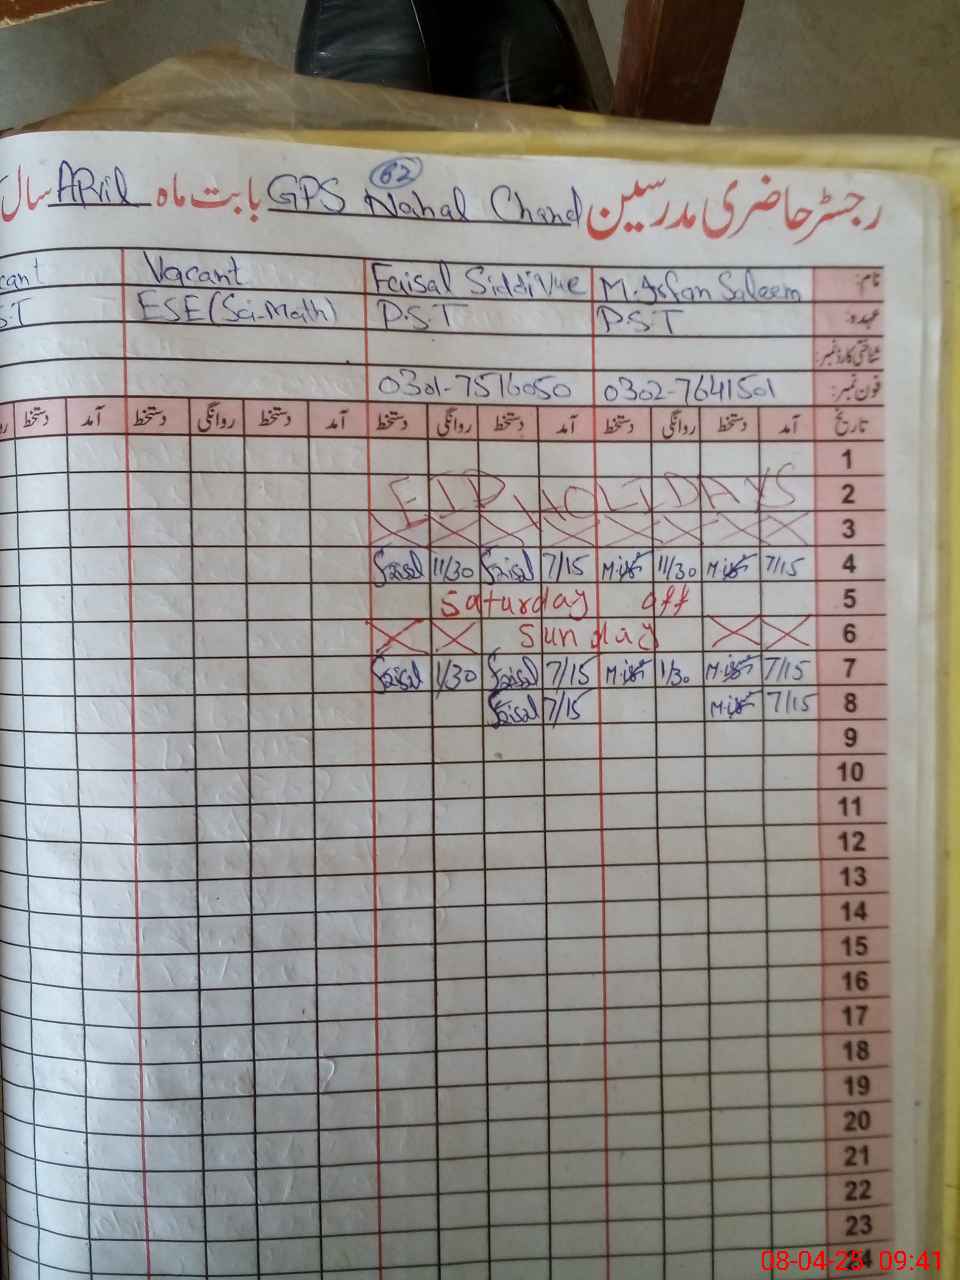 62
رجسٹر حاضری مدرسین GPS Nahal Chand بابت ماہ APril سال
نام: M.Irfan Saleem Faisal SiddiVue Vacant cant
عہدہ: P.S.T P.S.T ESE(Sci-Math) S.T
شناختی کارڈ نمبر:
فون نمبر: 0302-7641501 0301-7516050
تاریخ آمد دستخط روانگی دستخط آمد دستخط روانگی دستخط آمد دستخط روانگی دستخط آمد دستخط
1
2 EID HOLIDAYS
3
4 7/15 11/30 7/15 Faisal 11/30 Faisal
5 Saturday off
6 Sunday
7 7/15 1/30 7/15 Faisal 1/30 Faisal
8 7/15 7/15 Faisal
9
10
11
12
13
14
15
16
17
18
19
20
21
22
23
24
08-04-25 09:41